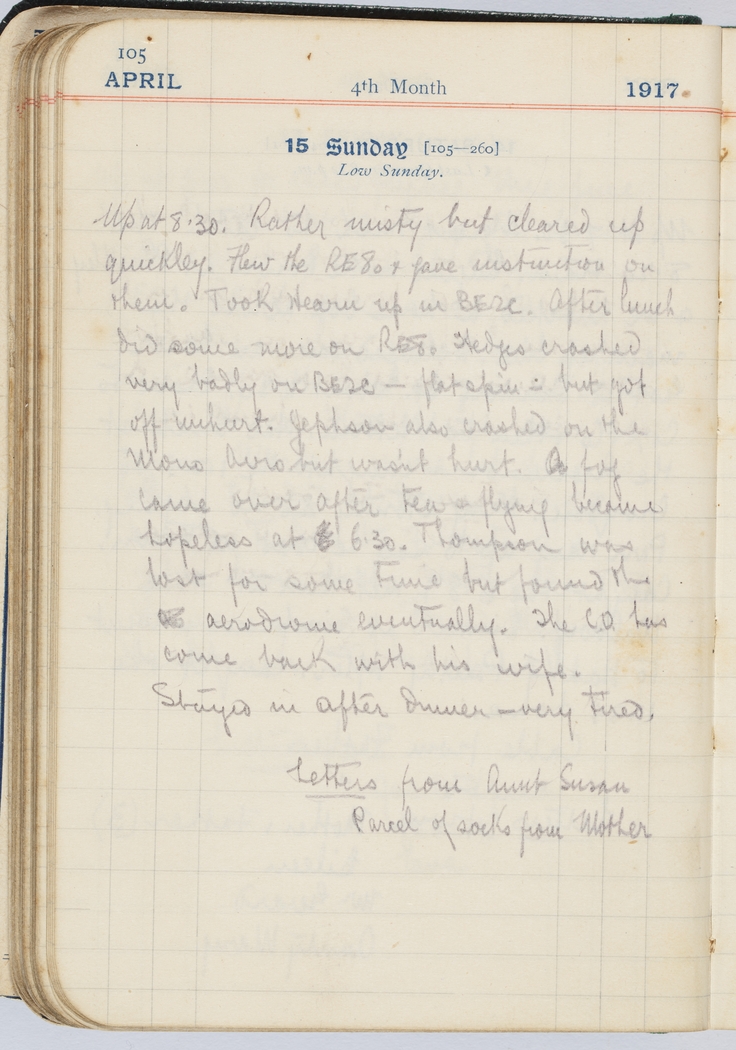 105
APRIL 4th Month 1917
15 Sunday [105—260]
Low Sunday.
Up at 8.30. Rather misty but cleared up
quickly. Flew the RE8s & gave instruction on
them. Took Hearn up in BE2C. After lunch
did some more on RE8s. Hedges crashed
very badly on BE2C — flat spin - but got
off unhurt. Jephson also crashed on the
Mono Avro but wasn't hurt. A fog
came over after tea & flying became
hopeless at 6.30. Thompson was
lost for some time but found the
aerodrome eventually. The C.O. has
come back with his wife.
Stayed in after dinner — very tired.
Letters from Aunt Susan
Parcel of socks from Mother